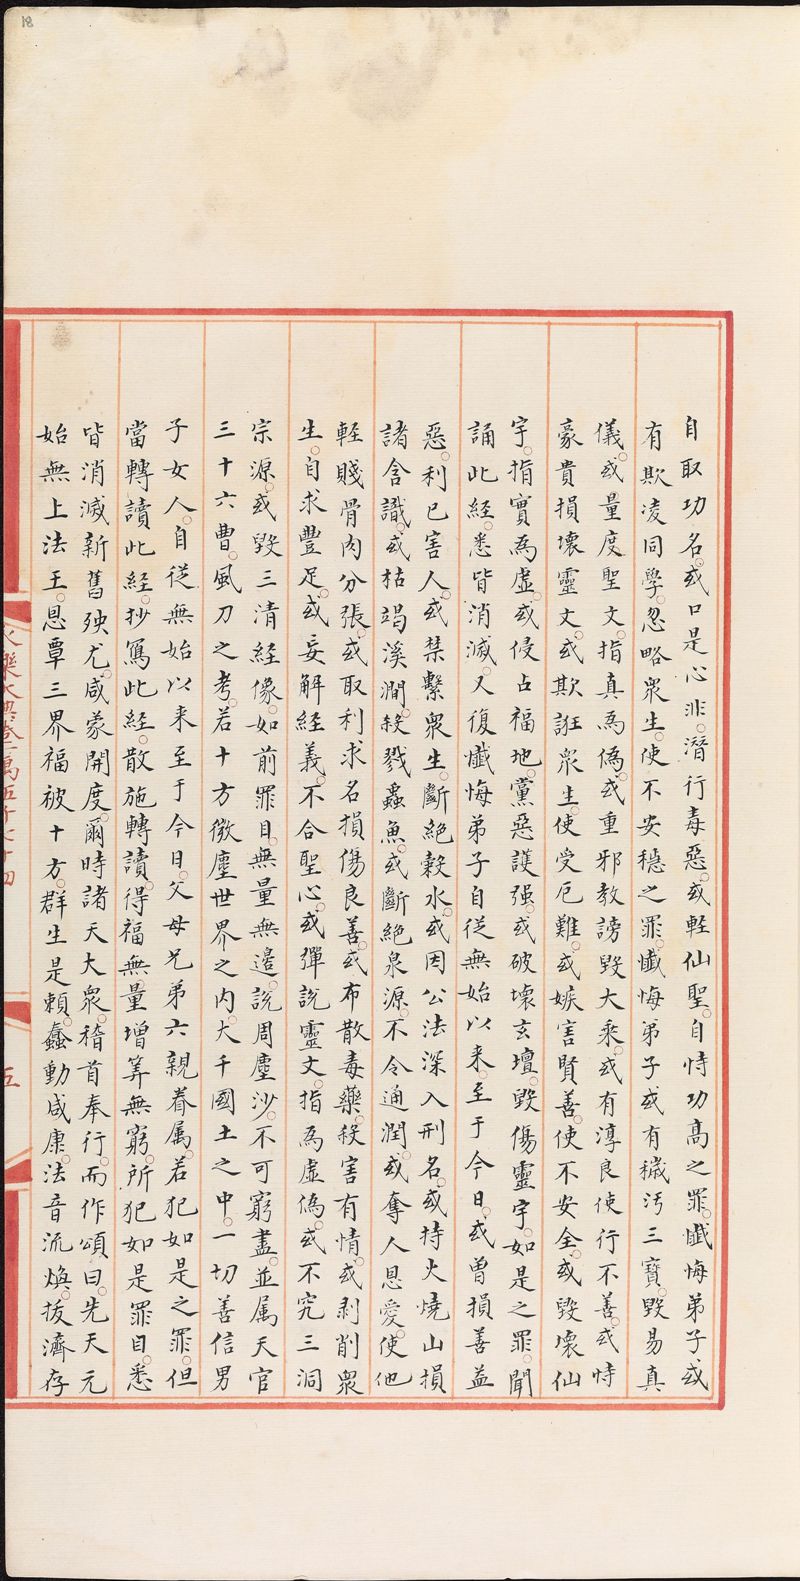 自取功名或口是心非潛行毒惡或輕仙聖自恃功高之罪懺悔弟子或
有欺凌同學忽略衆生使不安穩之罪懺悔弟子或有穢汚三寳毀易真
儀或量度聖文指真爲僞或重邪教謗毀大乘或有淳良使行不善或恃
豪貴損壞靈文或欺誑衆生使受厄難或嫉害賢善使不安全或毀壞仙
宇指實爲虛或侵占福地黨惡護强或破壞玄壇毀傷靈宇如是之罪聞
誦此經悉皆消滅又復懺悔弟子自從無始以来至于今日或曽損善益
惡利已害人或禁繫衆生斷絶穀水或因公法深入刑名或持火燒山損
諸含識或枯竭溪澗殺戮蟲魚或斷絶泉源不令通潤或奪人恩愛使他
輕賤骨肉分張或取利求名損傷良善或布散毒藥殺害有情或剥削衆
生自求豐足或妄解經義不合聖心或彈説靈文指爲虛僞或不究三洞
宗源或毀三清經像如前罪目無量無邊説周塵沙不可窮盡並属天官
三十六曹風刀之考若十方微塵世界之内大千國土之中一切善信男
子女人自從無始以来至于今日父母兄弟六親眷属若犯如是之罪但
當轉讀此經抄寫此經散施轉讀得福無量増筭無窮所犯如是罪目悉
皆消滅新舊殃尤咸蒙開度爾時諸天大衆稽首奉行而作頌曰先天元
始無上法王恩覃三界福被十方群生是頼蠢動咸康法音流煥拔濟存
五
18